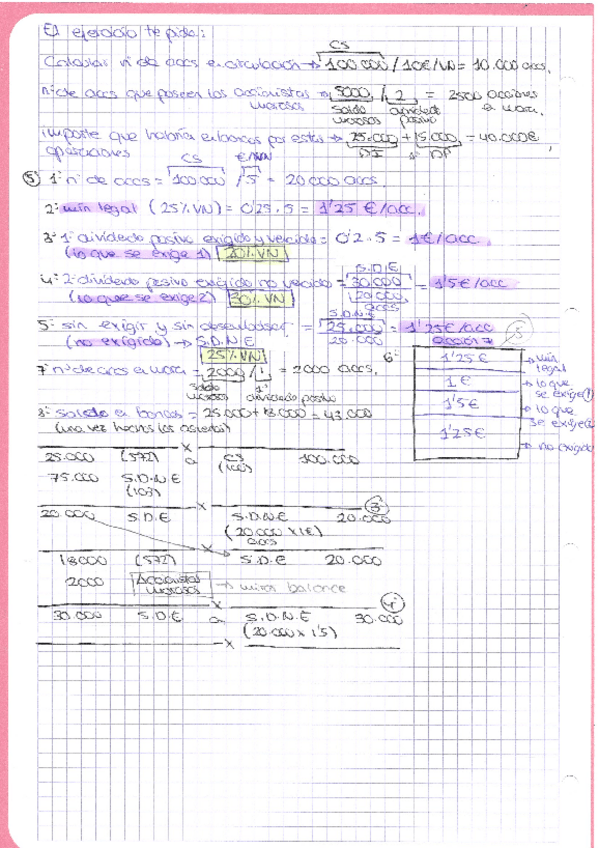 El ejercicio te pide:
CS
Calcular nº de accs en circulación → 100.000 / 10€/VN = 10.000 accs.
nº de accs que poseen los accionistas morosos → 5000 / 2 = 2500 acciones en mora.
saldo morosos dividendo pasivo
importe que habría en bancos por estas operaciones → 25.000 + 15.000 = 40.000€,
DI 1º DP
CS €/VN
⑤ 1º nº de accs = 100.000 / 5 = 20.000 accs.
2º mín legal (25% VN) = 0'25 · 5 = 1'25 €/acc.
3º 1º dividendo pasivo exigido y vencido = 0'2 · 5 = 1€/acc.
(lo que se exige 1) 20% VN
4º 2º dividendo pasivo exigido no vencido = S.D.E 30.000 / 20.000 accs = 1'5€/acc
(lo que se exige 2) 30% VN
5º sin exigir y sin desembolsar = S.D.N.E 25.000 / 20.000 = 1'25€/acc
(no exigido) → S.D.N.E
25% VN
acción
5
6º
1'25€ → mín legal
1€ → lo que se exige ①
1'5€ → lo que se exige ②
1'25€ → no exigido
7º nº de accs en mora = 2000 / 1 = 2000 accs.
saldo morosos 1º dividendo pasivo
8º saldo en bancos = 25.000 + 18.000 = 43.000
(una vez hechos los asientos)
25.000 (572) a CS (100) 100.000
75.000 S.D.N.E (103)
x
③
20.000 S.D.E S.D.N.E 20.000
(20.000 x 1€)
accs
x
18000 (572) S.D.E 20.000
2000 Accionistas morosos → mirar balance
x
④
30.000 S.D.E a S.D.N.E 30.000
(20.000 x 1'5)
x